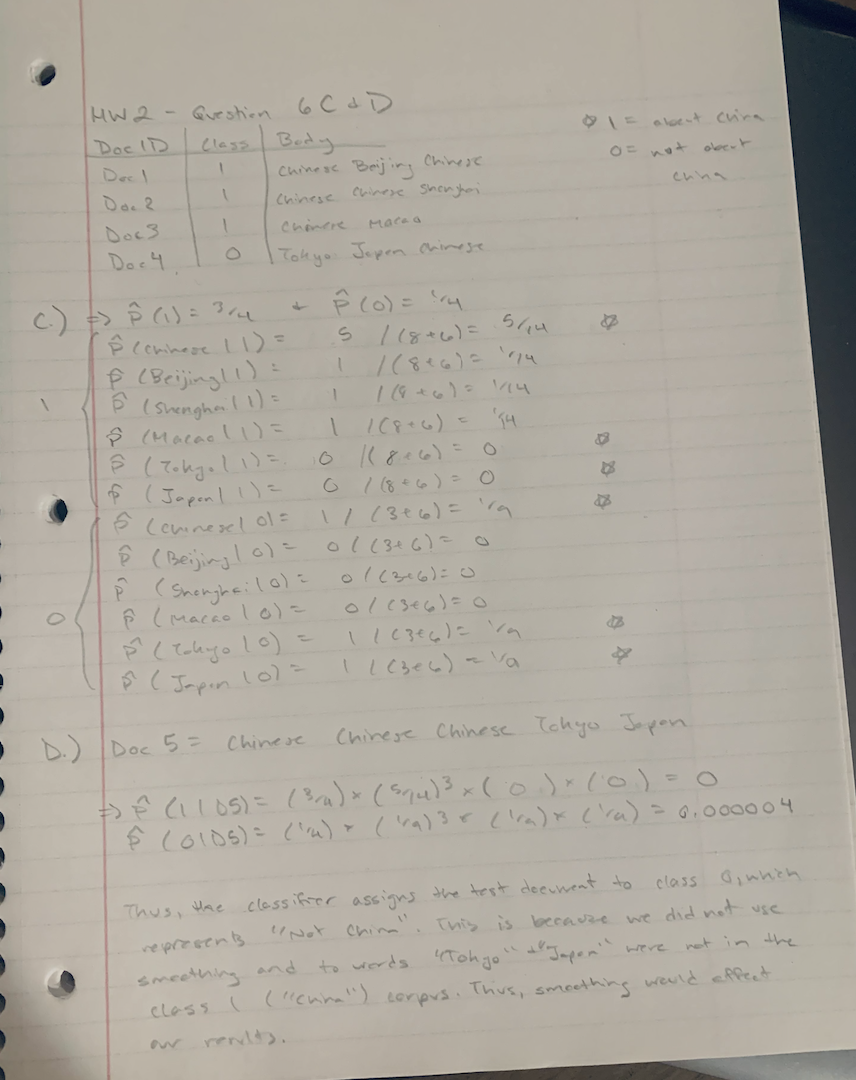 HW2 - Question 6C & D
Doc ID | Class | Body
☆ 1 = about China
Doc1 | 1 | Chinese Beijing Chinese
0 = not about
China
Doc2 | 1 | Chinese Chinese Shanghai
Doc3 | 1 | Chinese Macao
Doc4 | 0 | Tokyo Japan Chinese
C.) ⇒ P̂(1) = 3/4 & P̂(0) = 1/4
P̂(Chinese | 1) = 5 / (8+6) = 5/14 ☆
P̂(Beijing | 1) = 1 / (8+6) = 1/14
1 P̂(Shanghai | 1) = 1 / (8+6) = 1/14
P̂(Macao | 1) = 1 / (8+6) = 1/14
P̂(Tokyo | 1) = 0 / (8+6) = 0 ☆
P̂(Japan | 1) = 0 / (8+6) = 0 ☆
P̂(Chinese | 0) = 1 / (3+6) = 1/9 ☆
P̂(Beijing | 0) = 0 / (3+6) = 0
P̂(Shanghai | 0) = 0 / (3+6) = 0
0 P̂(Macao | 0) = 0 / (3+6) = 0
P̂(Tokyo | 0) = 1 / (3+6) = 1/9 ☆
P̂(Japan | 0) = 1 / (3+6) = 1/9 ☆
D.) Doc 5 = Chinese Chinese Chinese Tokyo Japan
⇒ P̂(1 | D5) = (3/4) × (5/14)³ × (0) × (0) = 0
P̂(0 | D5) = (1/4) × (1/9)³ × (1/9) × (1/9) = 0.000004
Thus, the classifier assigns the test document to class 0, which
represents "Not China". This is because we did not use
smoothing and to words "Tokyo" & "Japan" were not in the
class 1 ("China") corpus. Thus, smoothing would effect
our results.